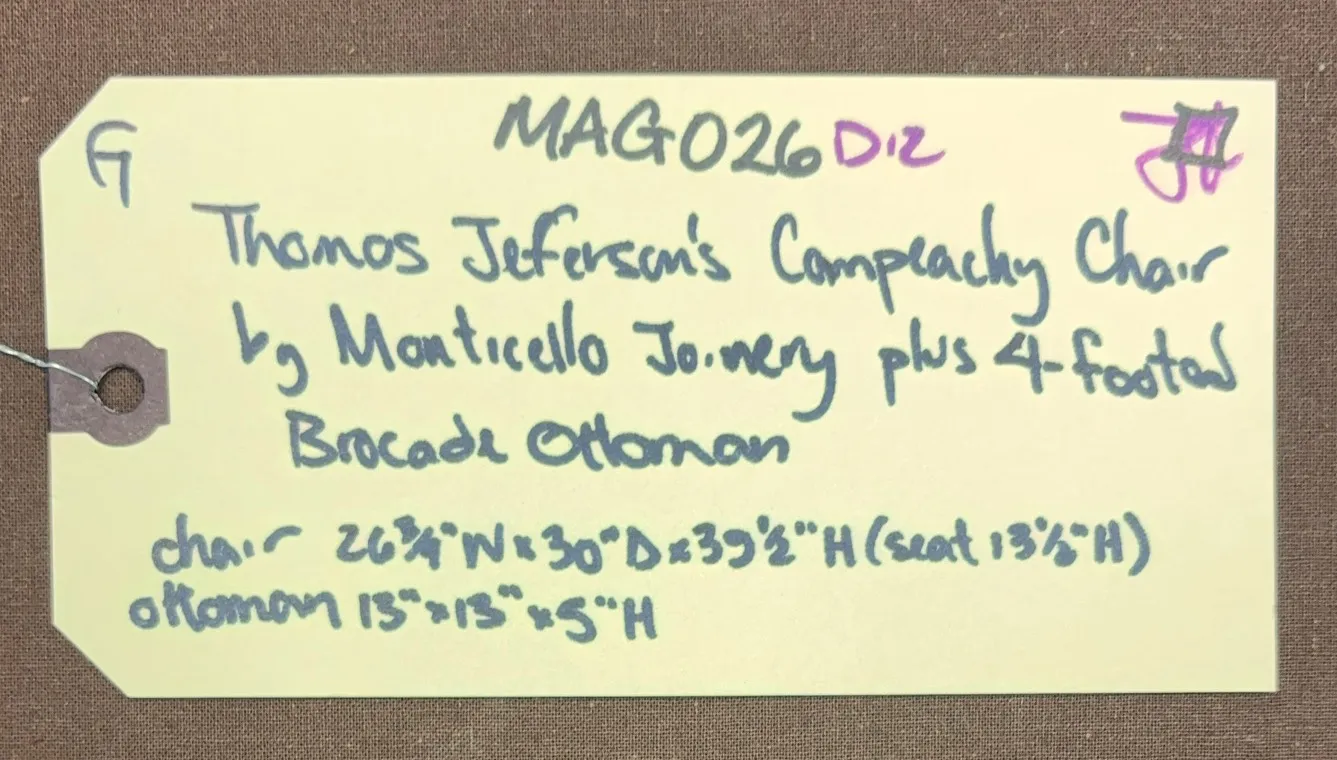 G
MAG026 D12
Thomas Jeferson's Campeachy Chair
by Monticello Joinery plus 4-footed
Brocade Ottoman
chair 26 3/4" W x 30" D x 39 1/2" H (seat 13 1/2" H)
ottoman 13" x 13" x 5" H